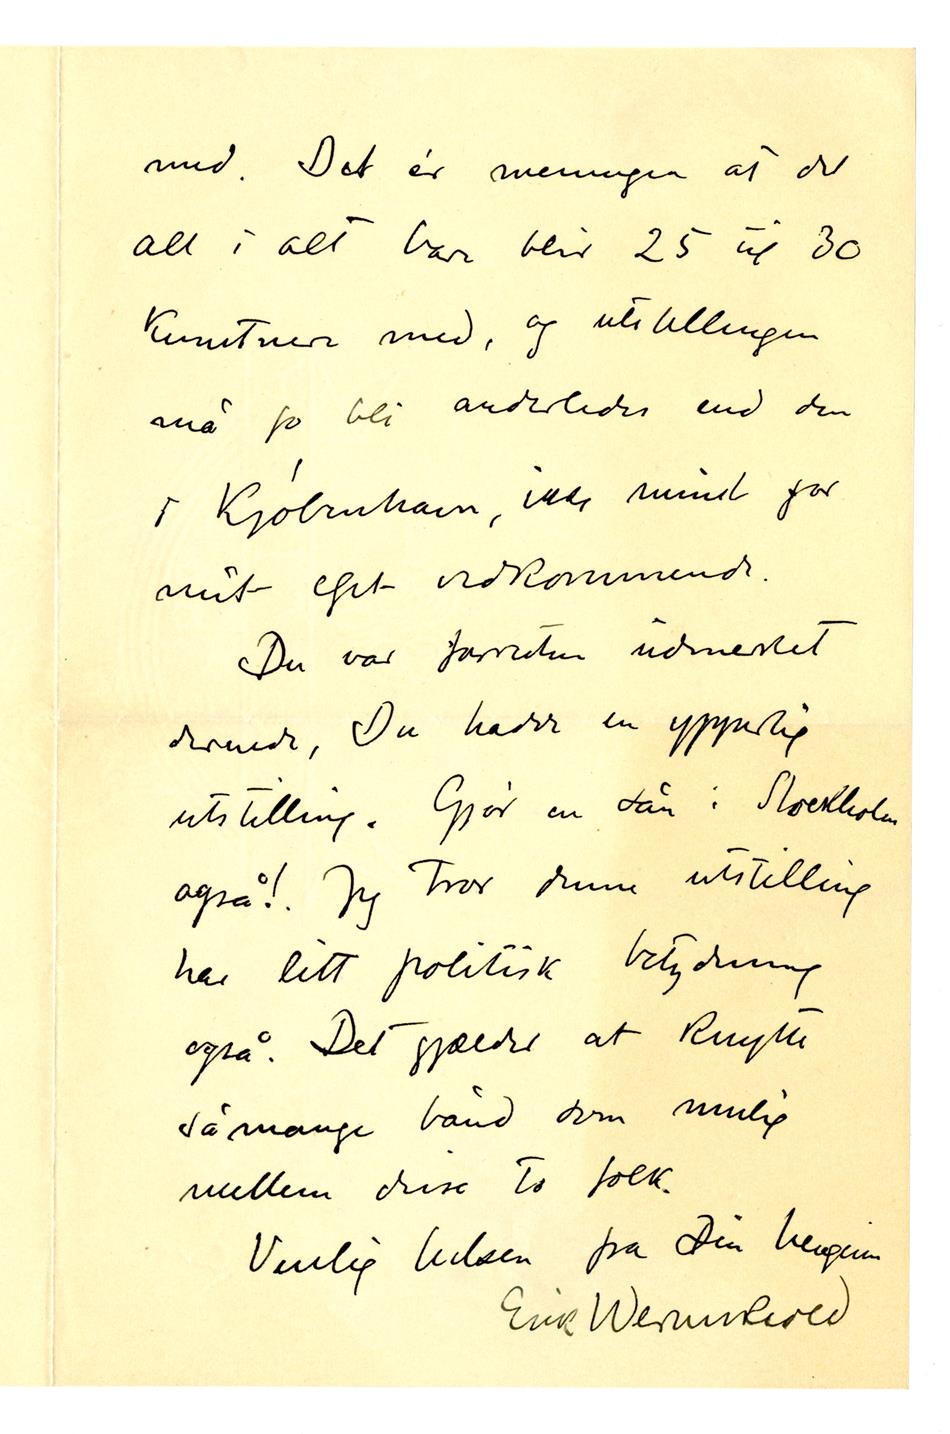 med. Det er meningen at det
alt i alt bare blir 25 til 30
Kunstnere med, og utstillingen
må jo bli anderledes end den
i Kjöbenhavn, ikke mindst for
mit eget vedkommende.
Du var forresten udmerket
dernede, Du hadde en ypperlig
utstilling. Gjör en sån i Stockholm
også!. Jeg tror denne utstilling
har litt politisk betydning
også. Det gjælder at knytte
så mange bånd som mulig
mellem disse to folk.
Venlig hilsen fra Din hengivne
Erik Werenskiold